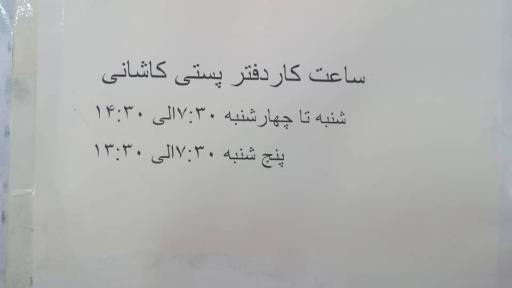 ساعت کاردفتر پستی کاشانی
شنبه تا چهارشنبه ۷:۳۰الی ۱۴:۳۰
پنج شنبه ۷:۳۰الی ۱۳:۳۰